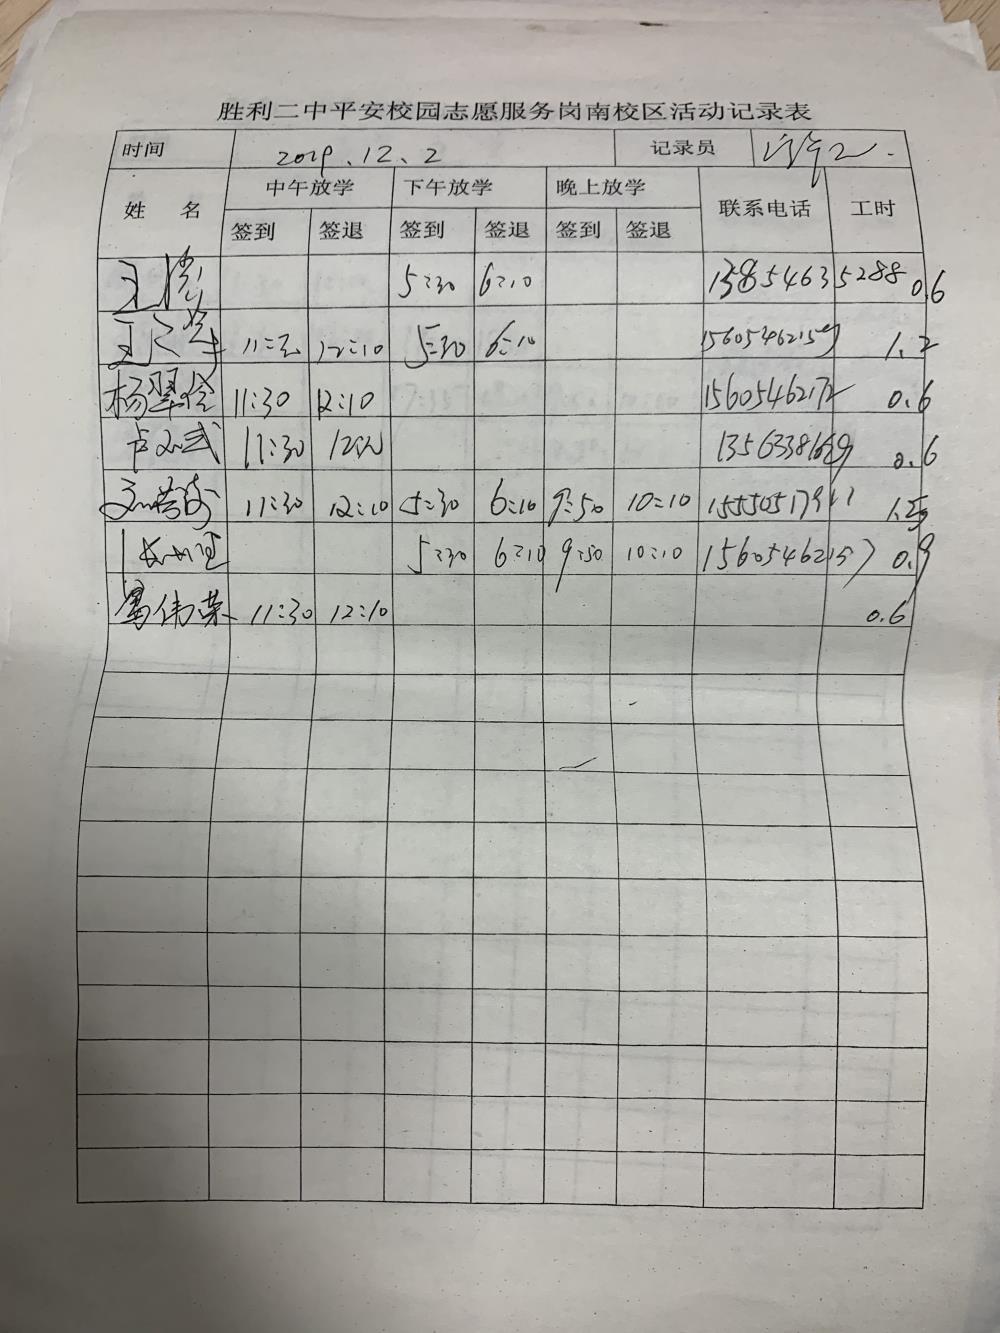 胜利二中平安校园志愿服务岗南校区活动记录表
时间 2019.12.2 记录员
姓 名 中午放学 下午放学 晚上放学 联系电话 工时
签到 签退 签到 签退 签到 签退
5:30 6:10 13854635288 0.6
11:30 12:10 5:30 6:10 1.2
杨翠玲 11:30 12:10 15605462172 0.6
11:30 0.6
11:30 12:10 5:30 6:10 9:50 10:10
5:30 6:10 9:50 10:10 15605462157 0.9
葛伟荣 11:30 12:10 0.6